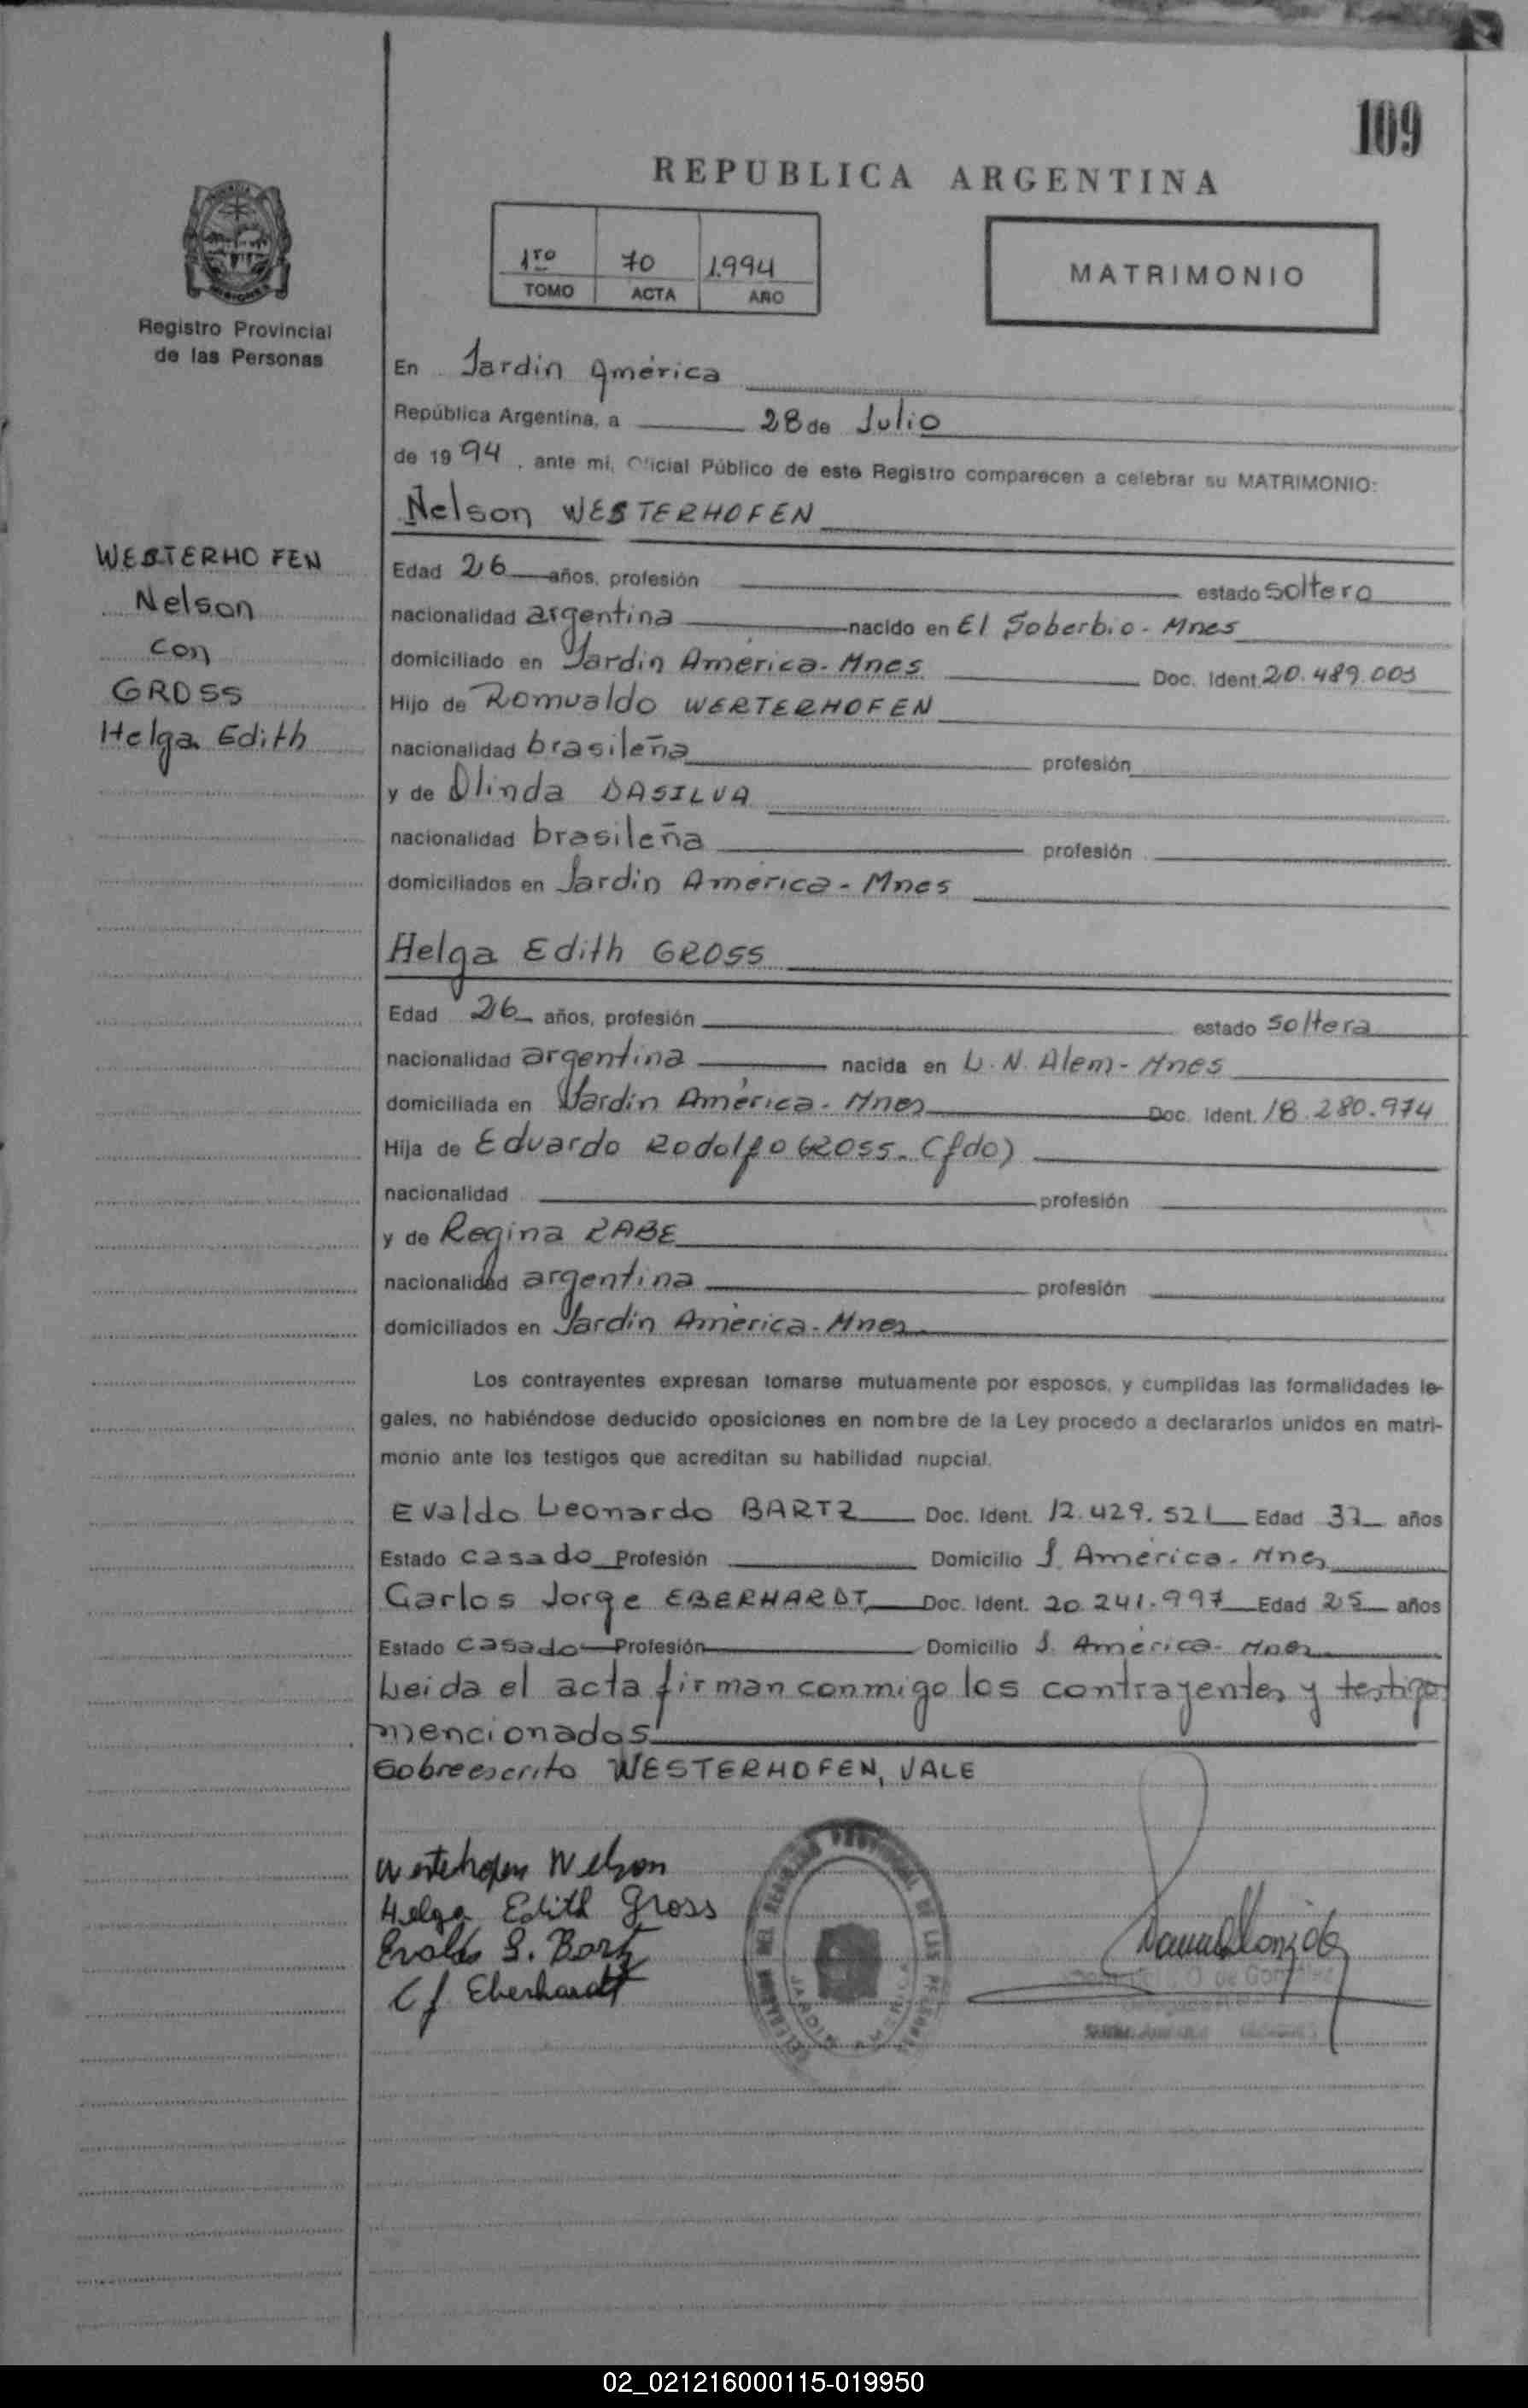 109
REPUBLICA ARGENTINA
1ro 70 1994
TOMO ACTA AÑO
MATRIMONIO
MISIONES
Registro Provincial
de las Personas
WESTERHOFEN
Nelson
con
GROSS
Helga Edith
En Jardín América
República Argentina, a 28 de Julio
de 1994, ante mi, Oficial Público de este Registro comparecen a celebrar su MATRIMONIO:
Nelson WESTERHOFEN
Edad 26 años, profesión estado soltero
nacionalidad argentina nacido en El Soberbio - Mnes
domiciliado en Jardín América - Mnes Doc. Ident. 20.489.003
Hijo de Romualdo WERTERHOFEN
nacionalidad brasileña profesión
y de Olinda DASILVA
nacionalidad brasileña profesión
domiciliados en Jardín América - Mnes
Helga Edith GROSS
Edad 26 años, profesión estado soltera
nacionalidad argentina nacida en L. N. Alem - Mnes
domiciliada en Jardín América - Mnes Doc. Ident. 18.280.974
Hija de Eduardo Rodolfo GROSS. (fdo)
nacionalidad profesión
y de Regina RABE
nacionalidad argentina profesión
domiciliados en Jardín América - Mnes
Los contrayentes expresan tomarse mutuamente por esposos, y cumplidas las formalidades le-
gales, no habiéndose deducido oposiciones en nombre de la Ley procedo a declararlos unidos en matri-
monio ante los testigos que acreditan su habilidad nupcial.
Evaldo Leonardo BARTZ Doc. Ident. 12.429.521 Edad 37 años
Estado casado Profesión Domicilio J. América - Mnes
Carlos Jorge EBERHARDT Doc. Ident. 20.241.997 Edad 25 años
Estado casado Profesión Domicilio J. América - Mnes
Leida el acta firman conmigo los contrayentes y testigos
mencionados
Sobreescrito WESTERHOFEN, VALE
Westerhofen Nelson
Helga Edith Gross
Evaldo L. Bartz
C J Eberhardt
PROVINCIAL DE LAS PERSONAS
JARDIN AMERICA
de González
02_021216000115-019950